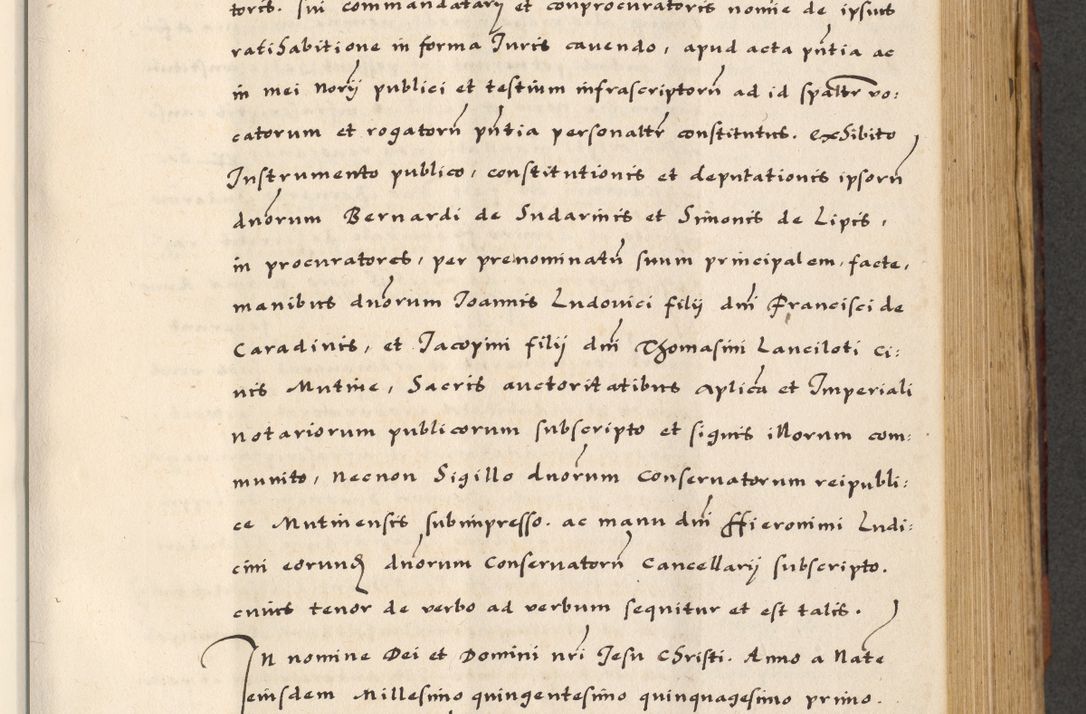 toris. sui commandatarij et conprocuratoris nomie de ipsius
ratihabitione in forma Iuris cauendo, apud acta pñtia ac
in mei Norij publici et testium infrascriptorũ ad id spaltr vo:
catorum et rogatorũ pñtia personaltr constitutus. exhibito
Instrumento publico, constitutionis et deputationis ipsorũ
dnorum Bernardi de Sudarinis et Simonis de Lipis,
in procuratores, per prenominatũ suum principalem, facte,
manibus dnorum Ioannis Ludouici filij dni Francisci de
Caradinis, et Iacopini filij dni Thomasini Lanciloti ci:
uis Mutine, Sacris auctoritatibus aplica et Imperiali
notariorum publicorum subscripto et signis illorum com:
munito, necnon Sigillo dnorum Conseruatorum reipubli:
ce Mutinensis subimpresso. ac manu dni Hieronimi Ludi:
cini eorundȝ dnorum Conseruatorũ Cancellarij subscripto.
cuius tenor de verbo ad verbum sequitur et est talis.
In nomine Dei et Domini nri Iesu Christi. Anno a Nate
eiusdem Millesimo quingentesimo quinquagesimo primo.